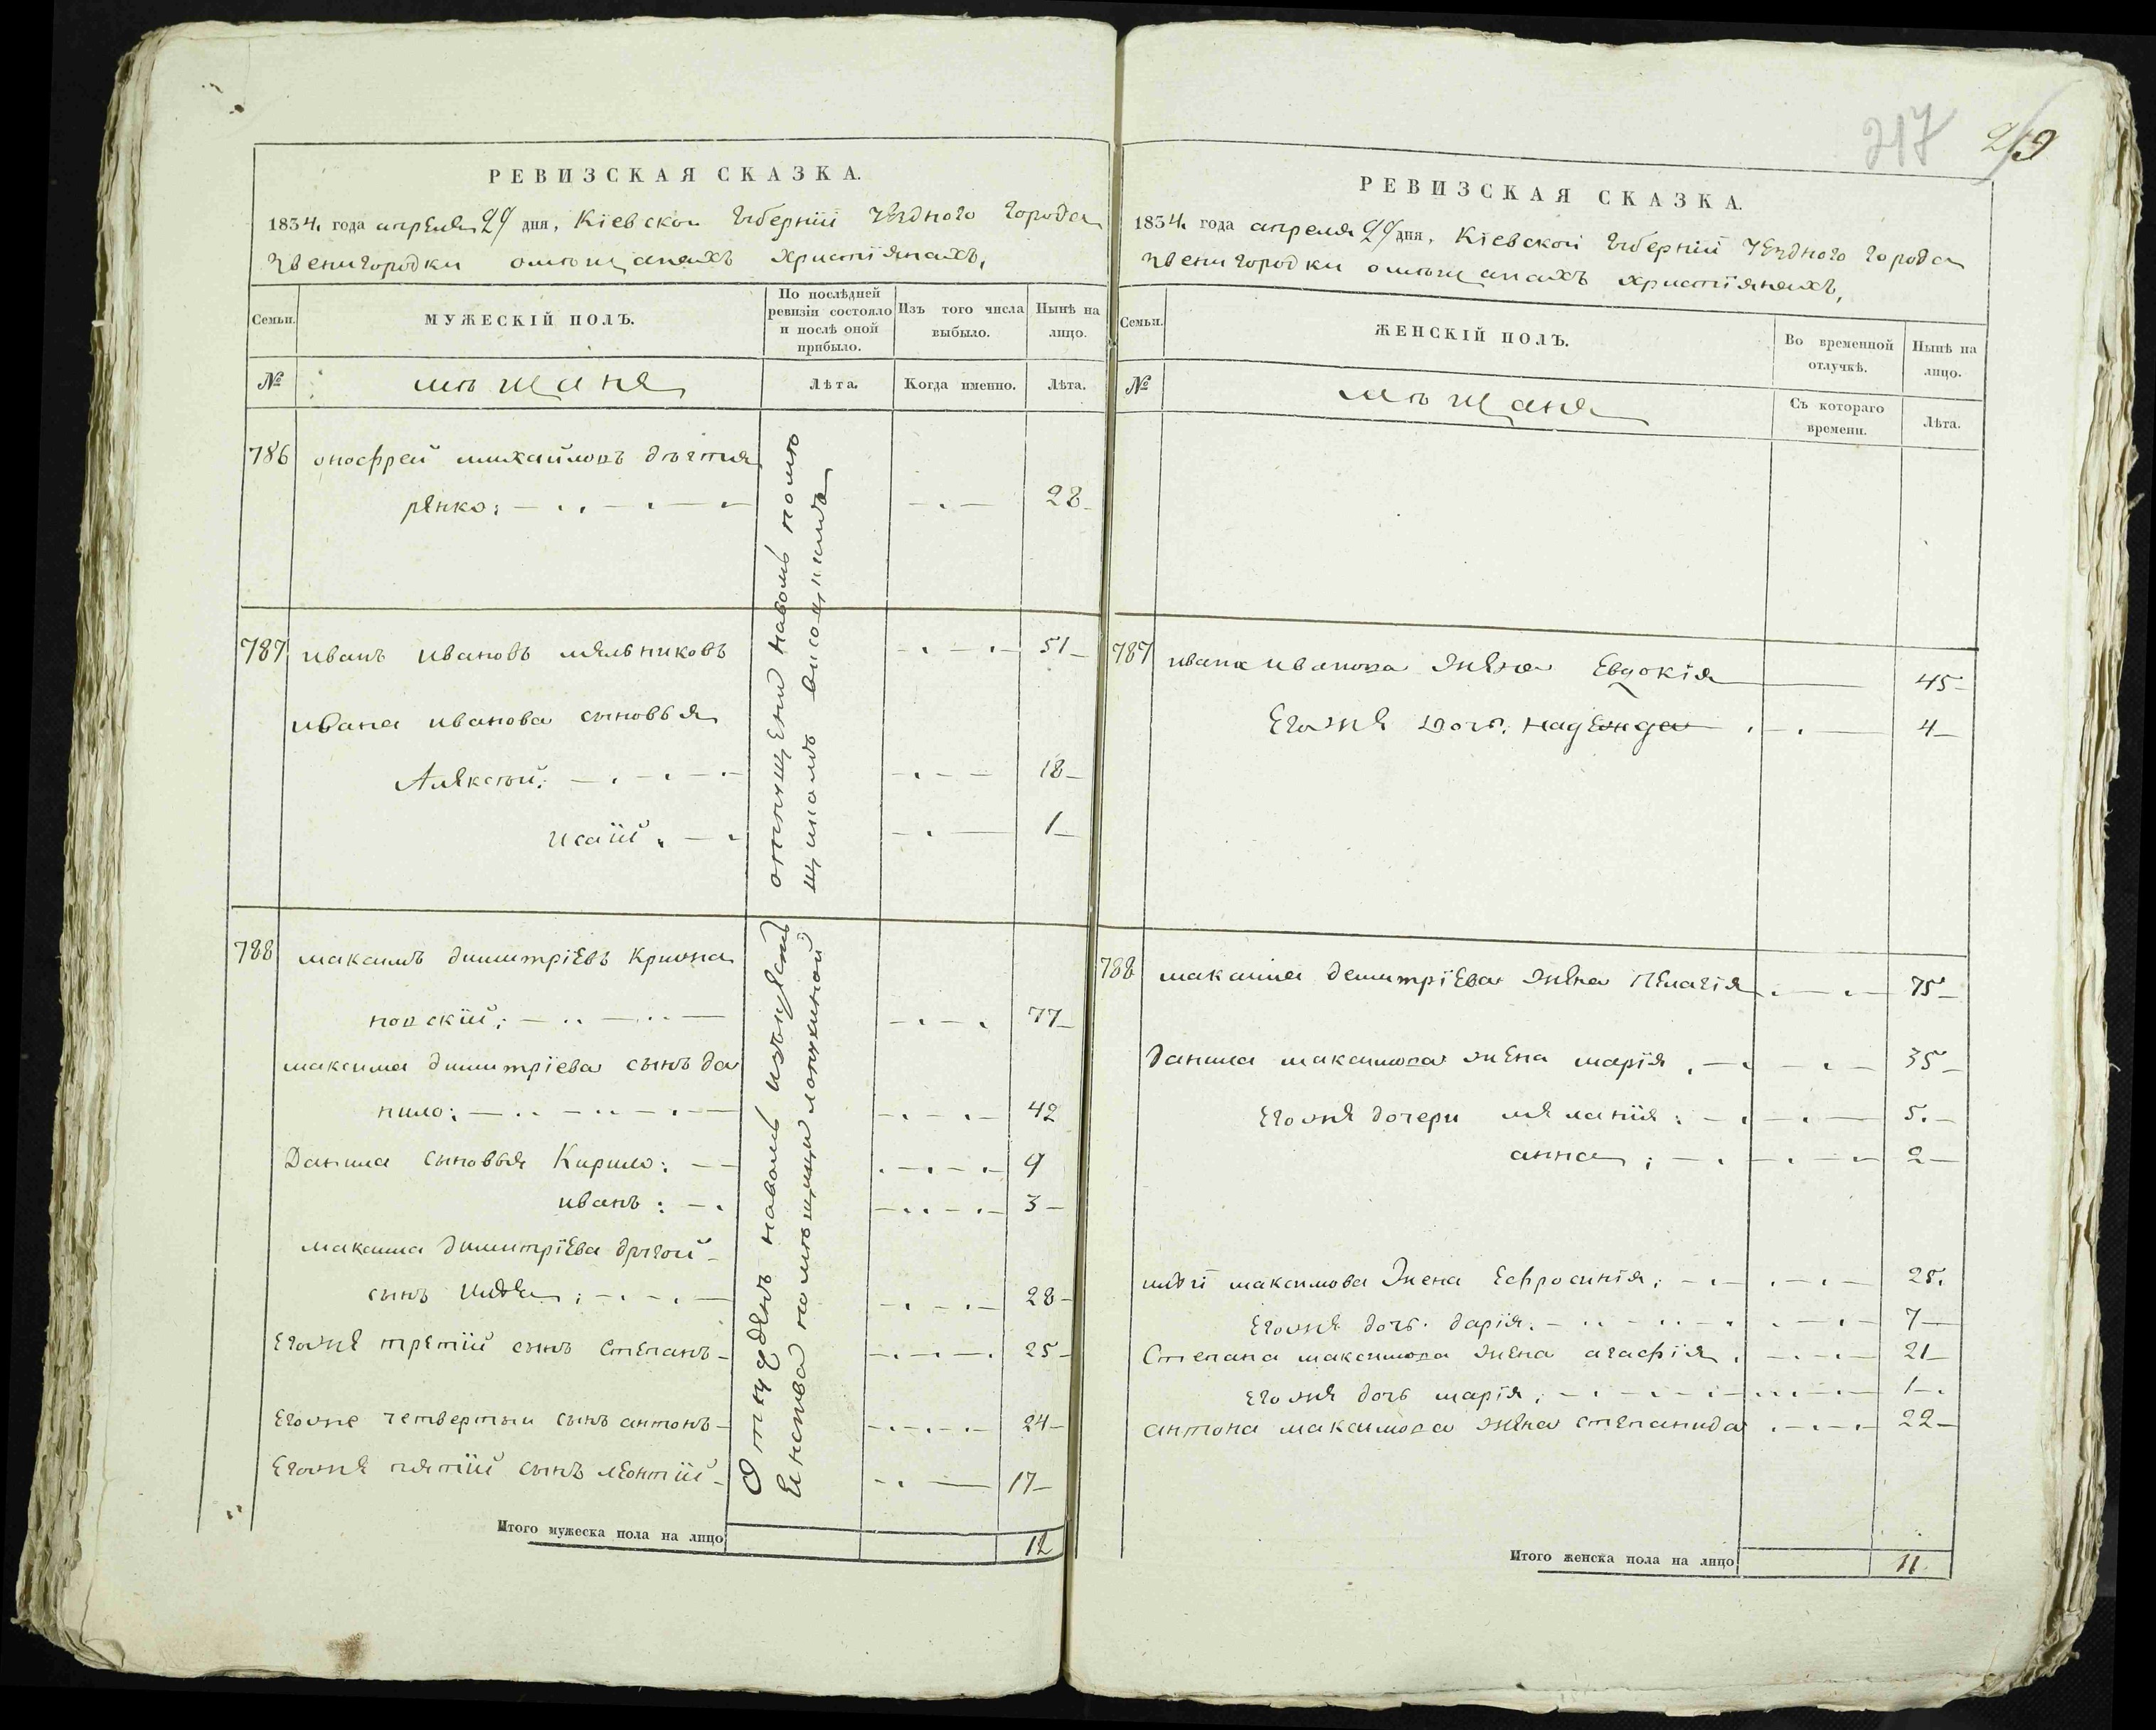 217
219
РЕВИЗСКАЯ СКАЗКА.
1834. года апреля 29 дня, Кіевской Губерніи уездного города
Звенигородки омѣщанахъ христіянахъ,
Семьи.
МУЖЕСКІЙ ПОЛЪ.
По послѣдней ревизіи состояло и послѣ оной прибыло.
Изъ того числа выбыло.
Нынѣ на лицо.
№
мѣщане
Лѣта.
Когда именно.
Лѣта.
786 онофрей михайловъ дѣгтя
ренко: 28
787 иванъ ивановъ мельниковъ 51
ивана иванова сыновья
Алексѣй: 18
исаій 1
788 максимъ димитріевъ
новскій: 77
максима димитріева сынъ да
нило: 42
Данила сыновья Кирило: 9
иванъ: 3
максима димитріева другой
сынъ 28
Егоже третій сынъ степанъ 25
Егоже четвертыи сынъ антонъ 24
Егоже пятій сынъ леонтій 17
Итого мужеска пола на лицо 12
РЕВИЗСКАЯ СКАЗКА.
1834. года апреля 29 дня, Кіевской Губерніи уездного города
Звенигородки омѣщанахъ христіянахъ,
Семьи.
ЖЕНСКІЙ ПОЛЪ.
Во временной отлучкѣ.
Нынѣ на лицо.
№
мѣщане
Съ котораго времени.
Лѣта.
787 ивана иванова жена Евдокія 45
Егоже дочь: надежда 4
788 максима демитріева жена Пелагія 75
данила максимова жена марія 35
Егоже дочери меланія: 5.
анна: 2
максимова жена Ефросинія: 25.
Егоже дочь. дарія. 7
Степана максимова жена агафія 21
Егоже дочь марія: 1
антона максимова жена степанида 22
Итого женска пола на лицо 11.